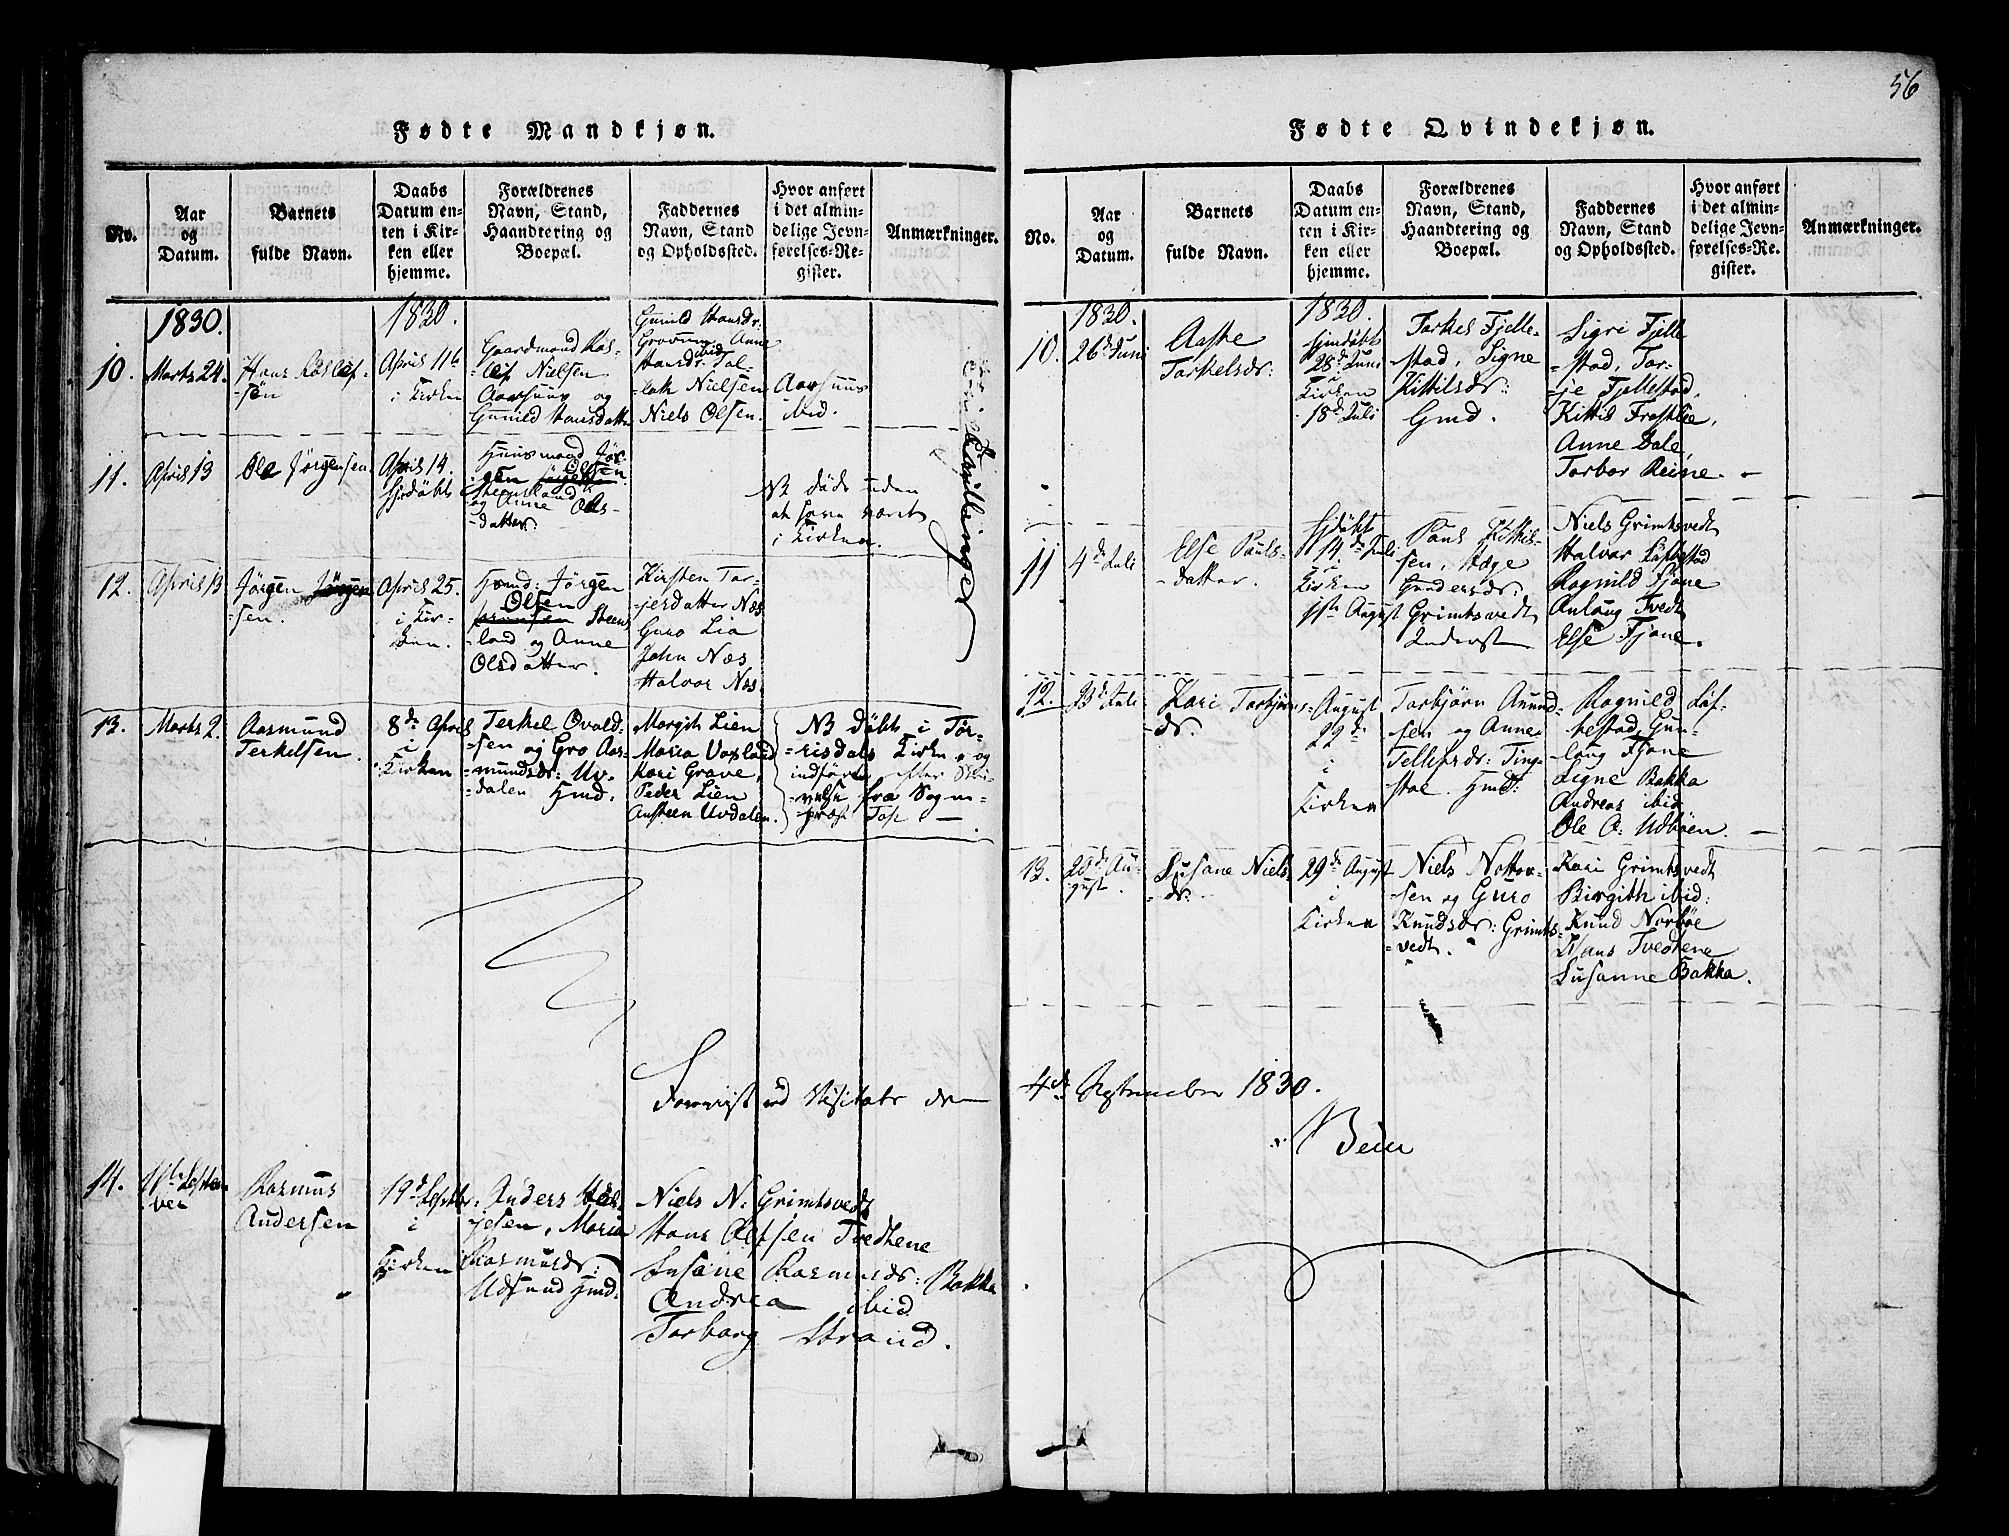 56
Fødte Mandkjøn.
No.
Aar
og
Datum.
Barnets
fulde Navn.
Daabs
Datum en-
ten i Kir-
ken eller
hjemme.
Forældrenes
Navn, Stand,
Haandtering og
Boepæl.
Faddernes
Navn, Stand
og Opholdssted.
Hvor anført
i det almin-
delige Jevn-
førelses-Re-
gister.
Anmærkninger.
1830.
1830.
10.
Marts 24.
Hans Rosleif-
-søn
April 11te
i Kirken
Gaardmand Ros-
-leif Nielsen
Aarhuus og
Gunild Hansdatter
Gunild Hansdr:
Grovum Anne
Hansdr: ibid Tal-
-lak Nielsen
Niels Olsen.
Aarhuus
ibid.
11.
April 13
Ole Jørgensen
April 14.
hjdøbt
Huusmand Jør-
gen Olsen
Steensland
og Anne Ols-
-datter.
NB døde uden
at have været
i Kirken.
Tvillinger
12.
April 13
Jørgen Jørgen
-sen.
April 25.
i Kir-
-ken.
Huusmd: Jørgen
Olsen
Steens-
-land og Anne
Olsdatter.
Kirsten Tor-
-jersdatter Næs
Guro Lia
John Næs,
Halvor Næs.
13.
Marts 2.
Aasmund
Terkelsen.
8de April
i
Kirken
Terkel Ovald-
-sen og Gro Aas-
-mundsdr: Uv-
-dalen Hmd.
Margit Lien
Maria Voxland
Kari Grave,
Peder Lien
Austeen Uvdalen.
NB døbt i Tør-
-risdals Kirke og
indført efter Ski-
-velse fra Sogne-
-præst Top —
Foreviist ved Visitats den
14.
11te Septem-
ber
Rasmus
Andersen
19de Septbr.
i
Kirken
Anders
-jesen, Maria
Rasmusdr:
Udsund Hmd.
Niels N: Grimtsvedt
Hans Olefsen Tvedtene
Susane Rasmusdr: Bakka
Andrea ibid
Torborg Strand.
Fødte Qvindekjøn.
No.
Aar
og
Datum.
Barnets
fulde Navn.
Daabs
Datum en-
ten i Kir-
ken eller
hjemme.
Forældrenes
Navn, Stand,
Haandtering og
Boepæl.
Faddernes
Navn, Stand
og Opholdssted.
Hvor anført
i det almin-
delige Jevn-
førelses-Re-
gister.
Anmærkninger.
1830.
1830.
10.
26de Juni
Aaste
Torkelsdr:
hjmdøbt
28de Juni
i
Kirken
18de Juli
Torkel Fjelle-
-stad, Signe
Kittilsdr:
Gmd.
Sigri Fjelle
-stad, Tor-
-je Fjellestad,
Kittil Frostlie,
Anne Dale,
Torbor Reine. —
11
4de Juli
Else Pauls-
-datter.
hjdøbt
14de Juli
i
Kirken
1ste August
Paul Kittils-
-sen, Aage
Gundersdr:
Grimtsvedt
Inderst
Niels Grimtsvedt
Halvor Løftestad
Ragnild Fjane
Anlaug Tvedt
Else Fjane.
12.
23de Juli
Kari Torbjørns-
-dr.
August
22de
i
Kirken
Torbjørn Anund-
-sen og Anne
Tellefsdr: Ting-
-stoe. Hmd:
Ragnild Løf-
-testad, Gun-
-laug Fjane
Signe Bakka
Andreas ibid
Ole A: Udbøen. —
13.
20de Au-
-gust.
Susane Niels-
-dr:
29de August
i
Kirken
Niels Nottov-
-sen og Guro
Knudsdr: Grimts-
-vedt.
Kari Grimtsvedt
Birgith ibid:
Knud Norbøe
Hans Tvedtene
Susanne Bakka.
4de September 1830.